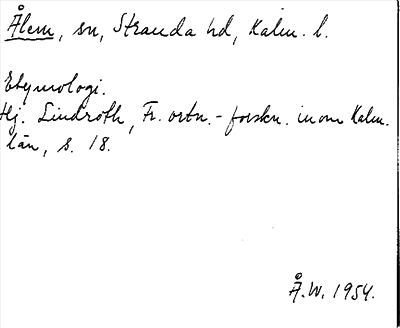 Ålem, sn, Stranda hd, Kalm. l.
Etymologi.
Hj. Lindroth, Fr. ortn.-forskn. inom Kalm.
län, s. 18.
Å.W. 1954.